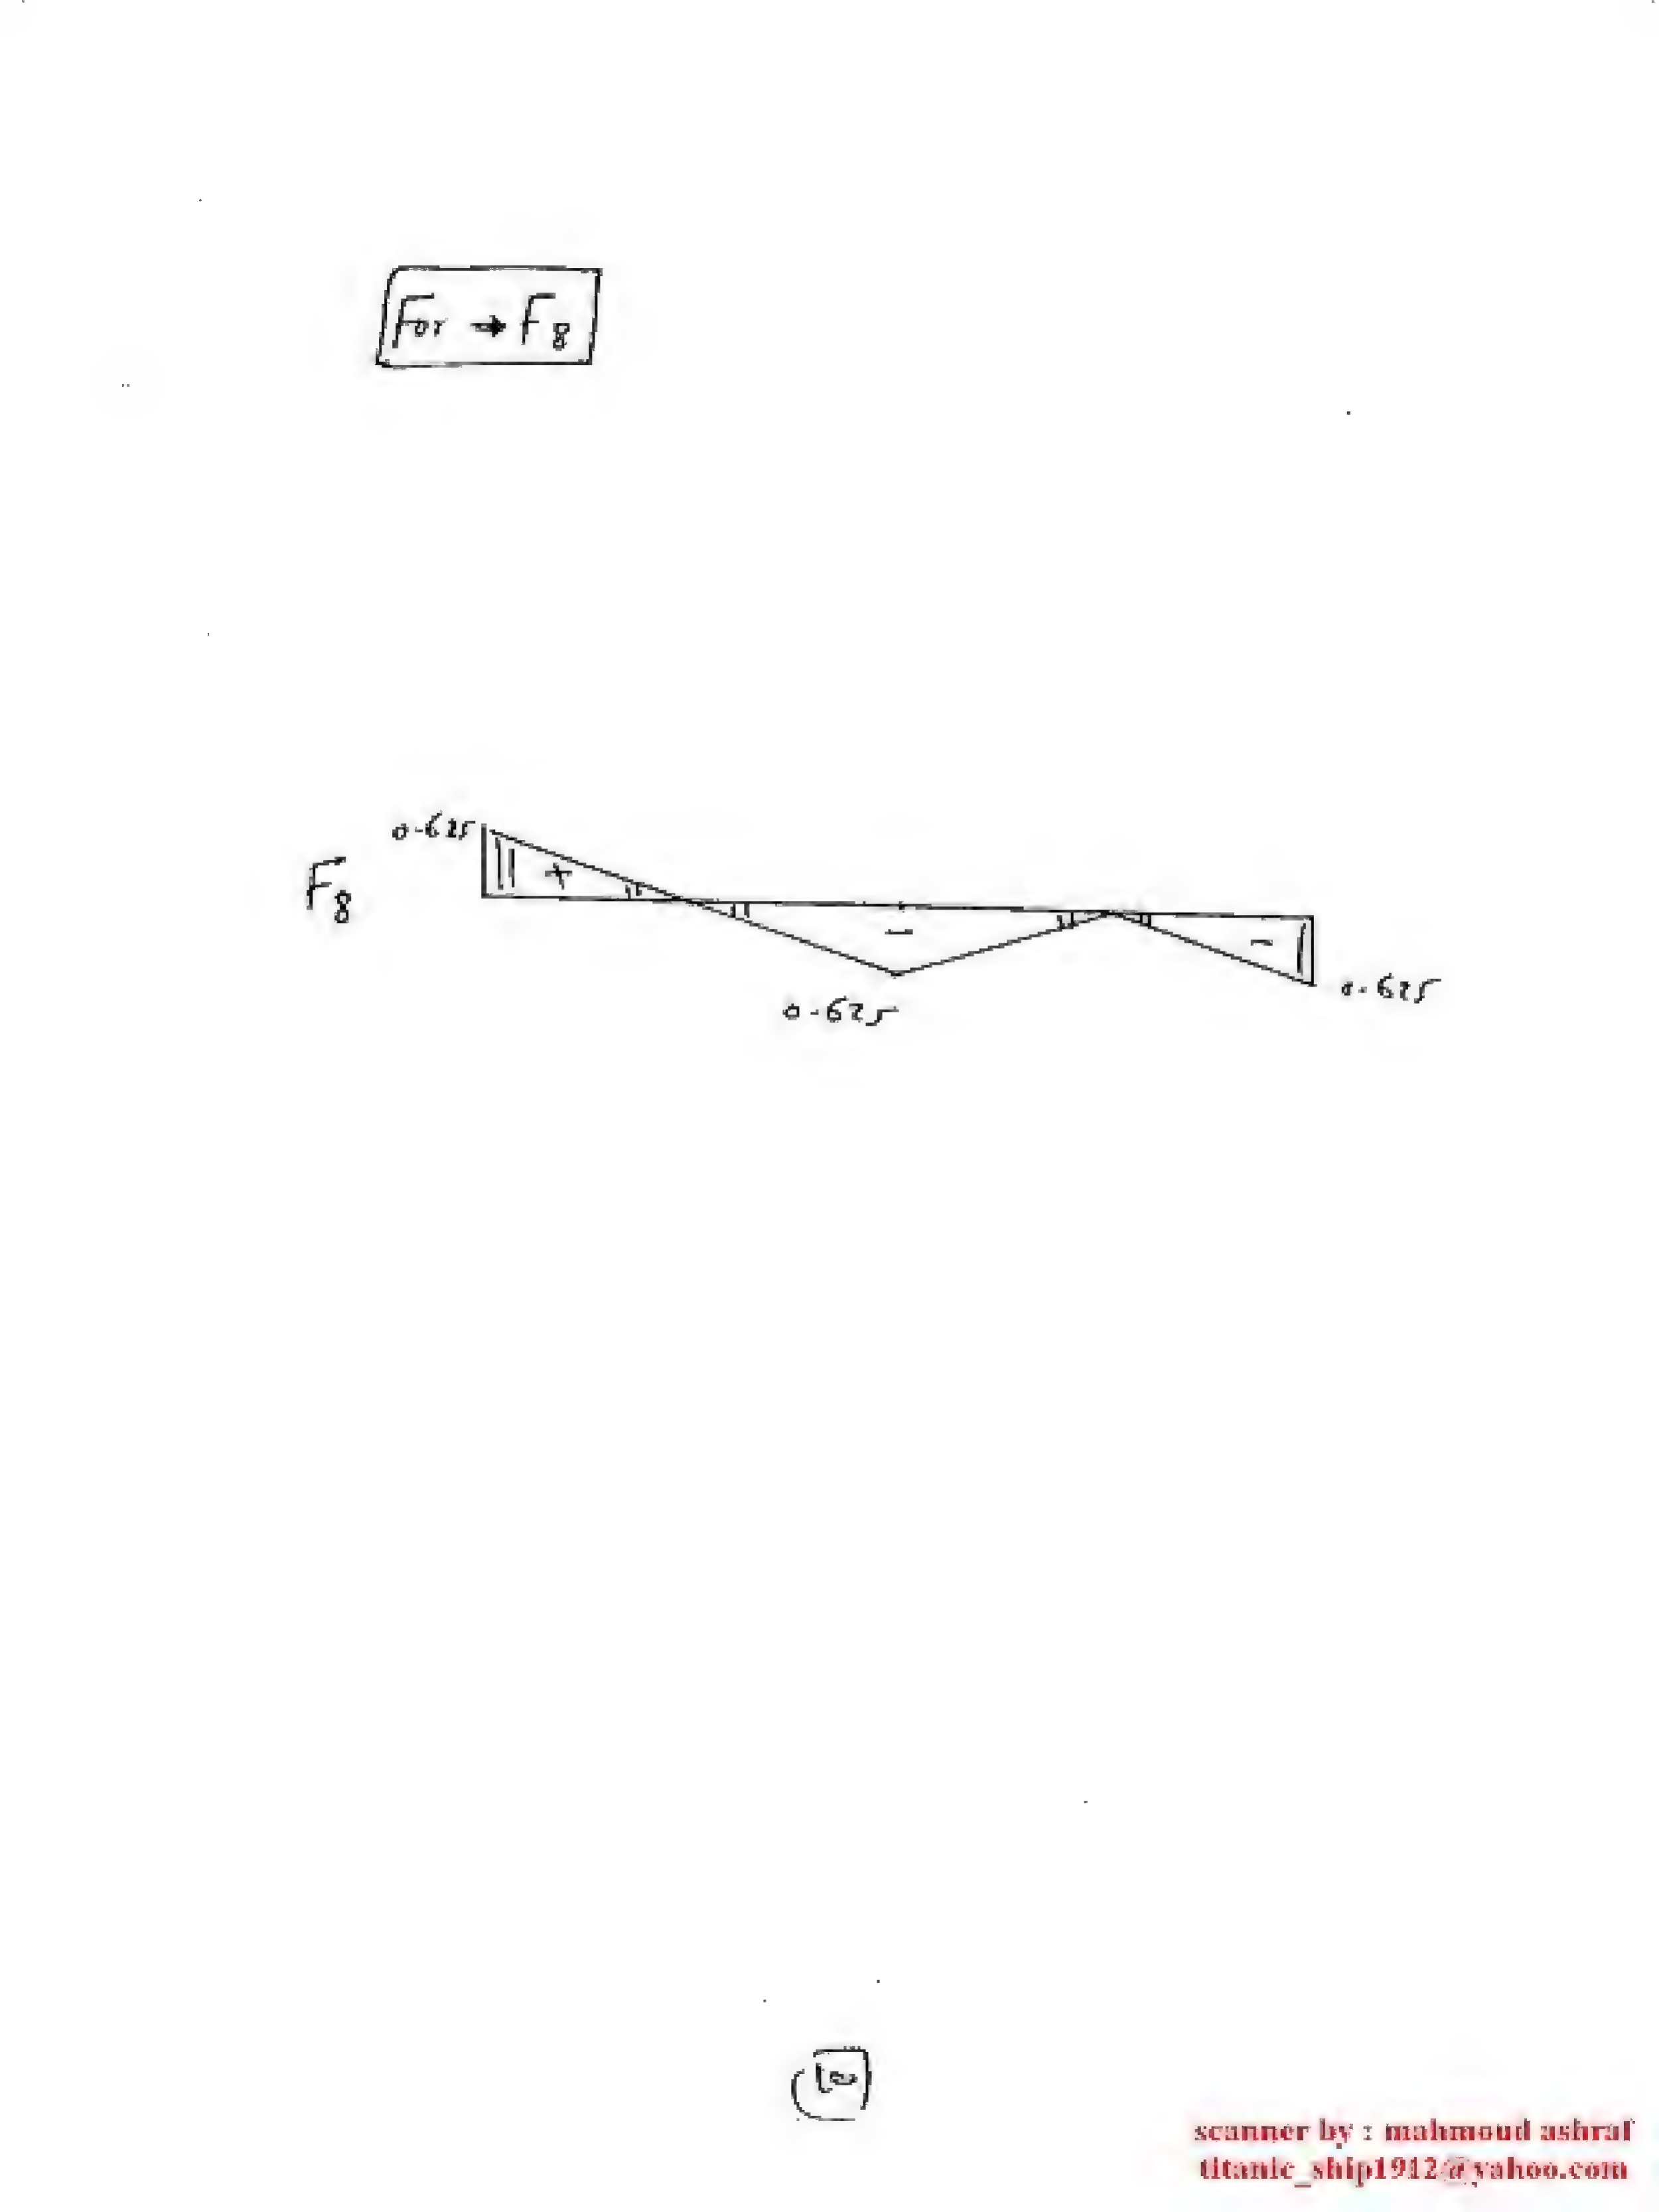 For → F8
0.625
F8
+
–
–
0.625
0.625
scanner by : mahmoud ashraf
titanic_ship1912@yahoo.com